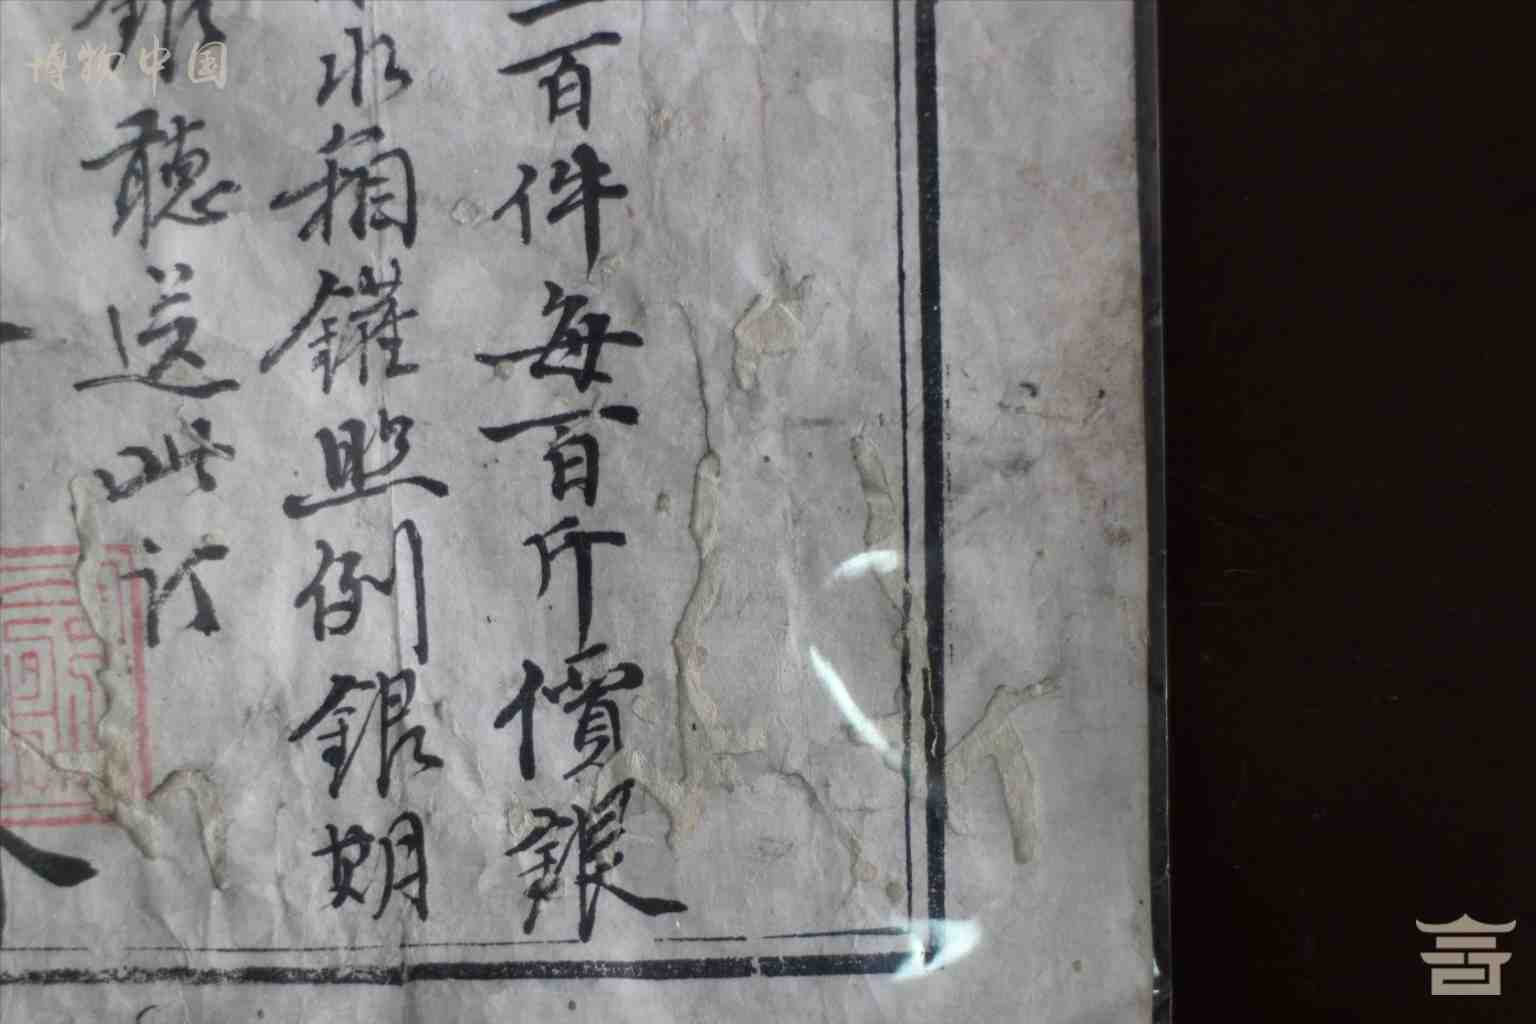 百件每百斤價銀
水箱鑵照例銀期
聽送此訂
博物中国